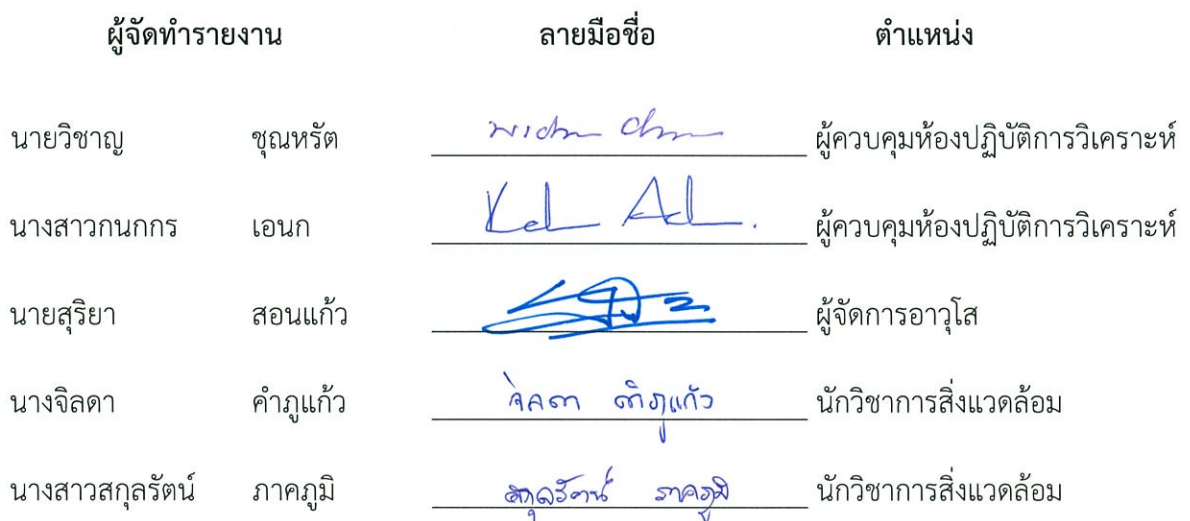 ผู้จัดทำรายงาน ลายมือชื่อ ตำแหน่ง
นายวิชาญ ชุณหรัต ผู้ควบคุมห้องปฏิบัติการวิเคราะห์
นางสาวกนกกร เอนก ผู้ควบคุมห้องปฏิบัติการวิเคราะห์
นายสุริยา สอนแก้ว ผู้จัดการอาวุโส
นางจิลดา คำภูแก้ว จิลดา คำภูแก้ว นักวิชาการสิ่งแวดล้อม
นางสาวสกุลรัตน์ ภาคภูมิ สกุลรัตน์ ภาคภูมิ นักวิชาการสิ่งแวดล้อม